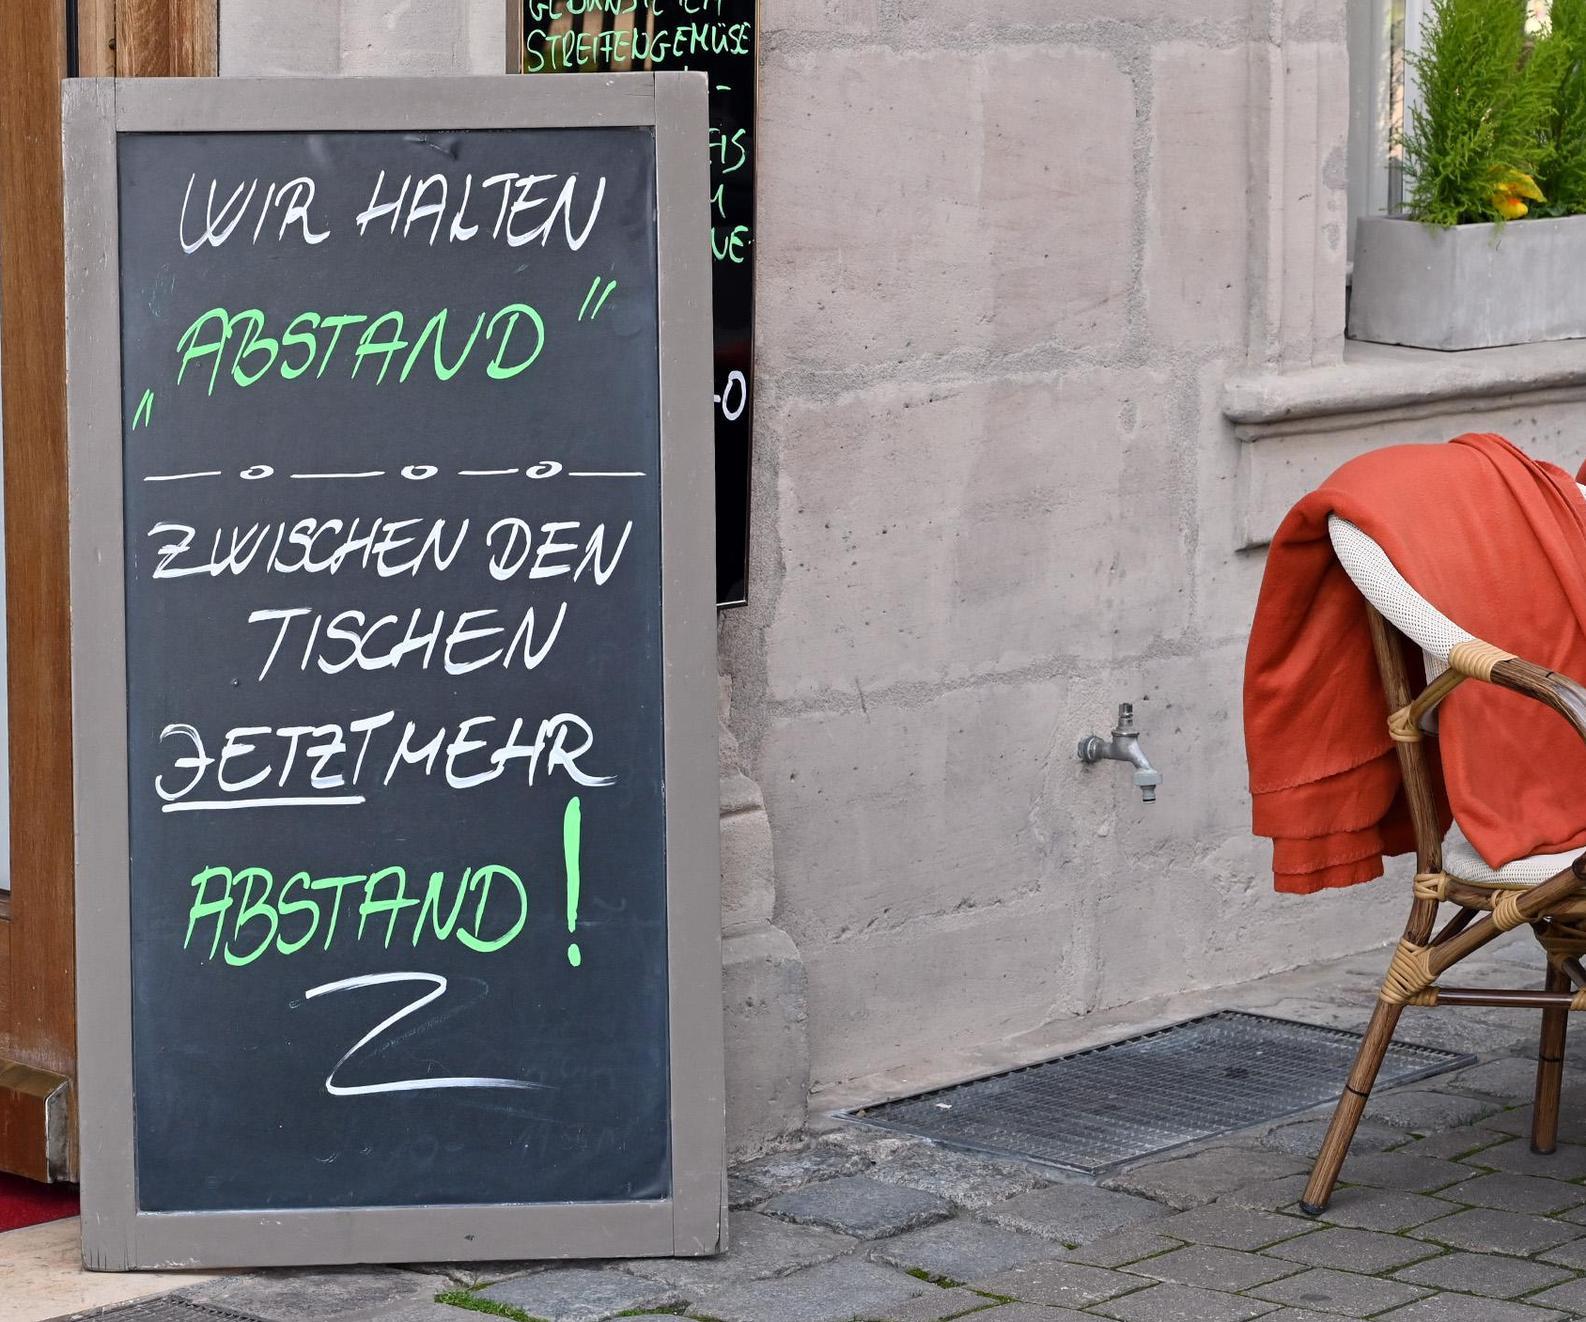 STREIFENGEMÜSE
WIR HALTEN
„ABSTAND"
ZWISCHEN DEN
TISCHEN
JETZT MEHR
ABSTAND!